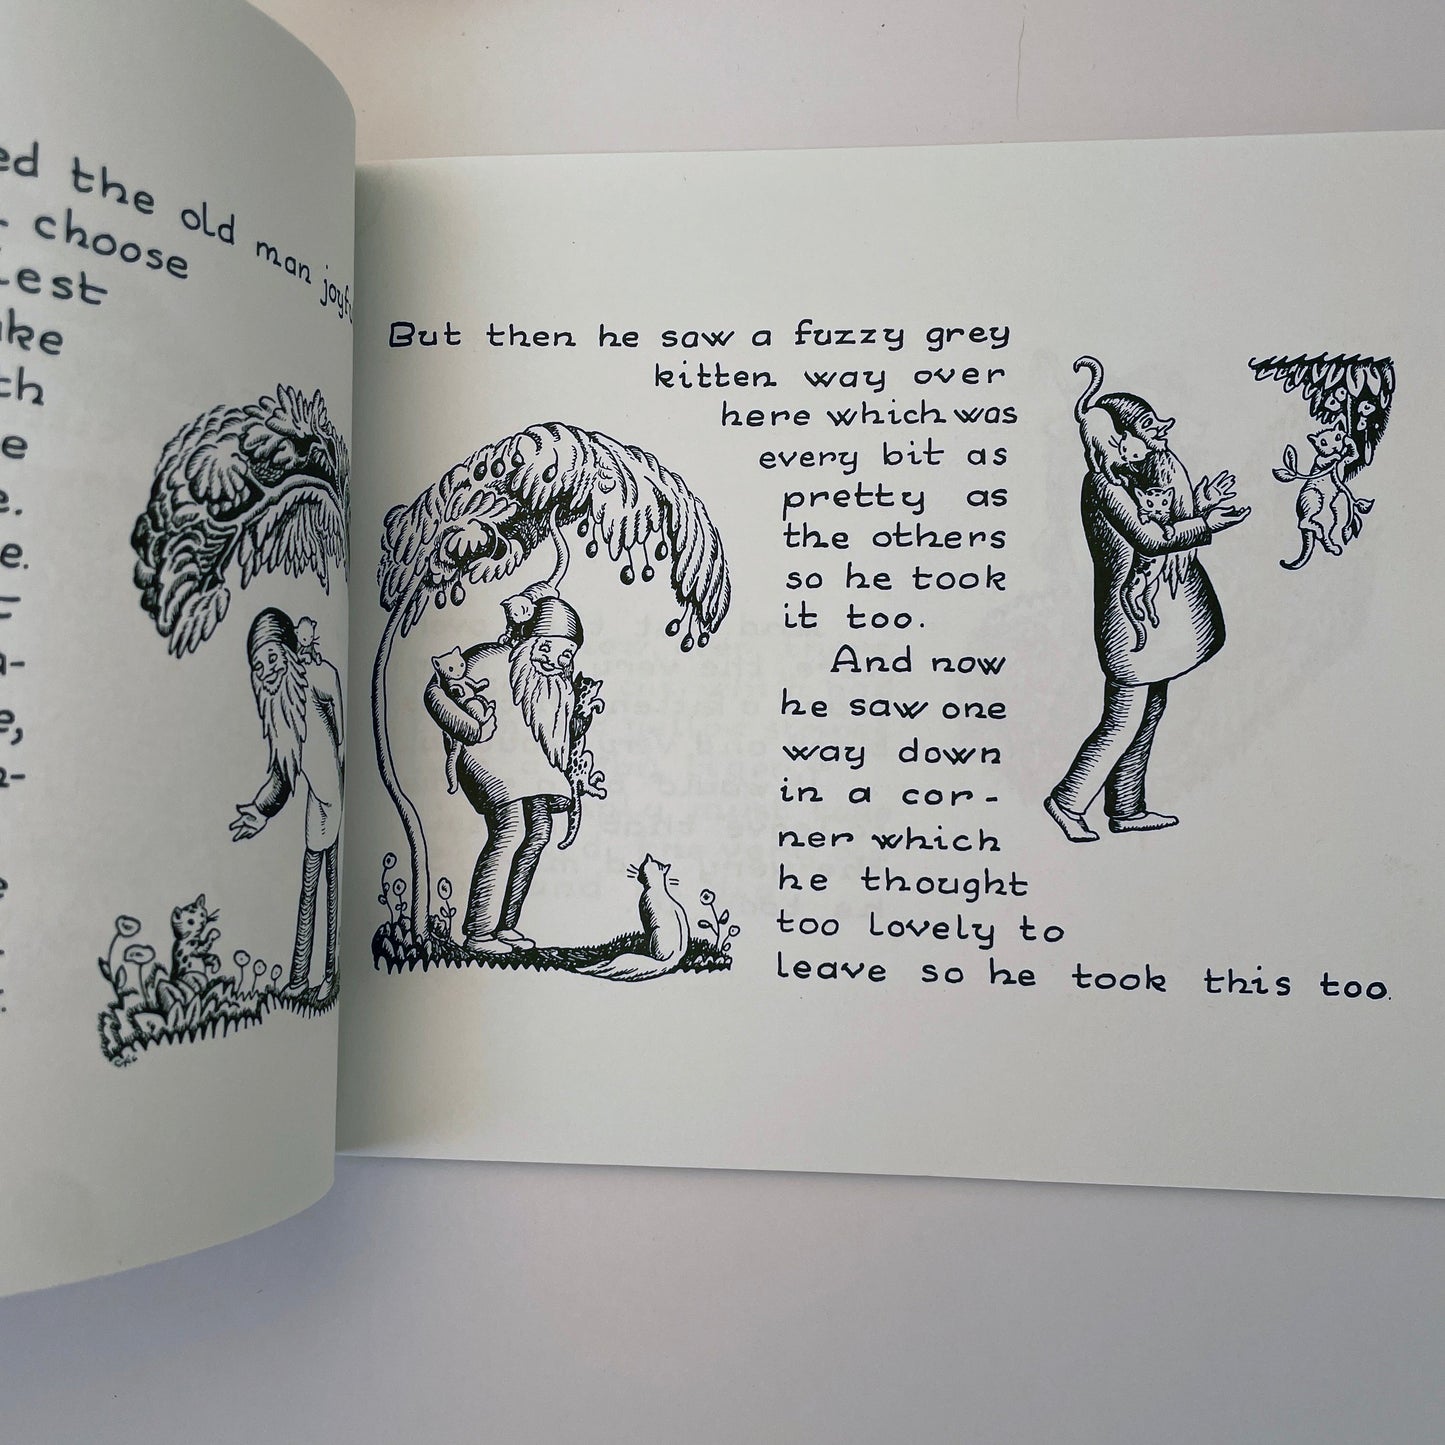 ed the old man
choose
ake
th
e
e.
e.
a-
e,
n-
e
But then he saw a fuzzy grey
kitten way over
here which was
every bit as
pretty as
the others
so he took
it too.
And now
he saw one
way down
in a cor-
ner which
he thought
too lovely to
leave so he took this too.